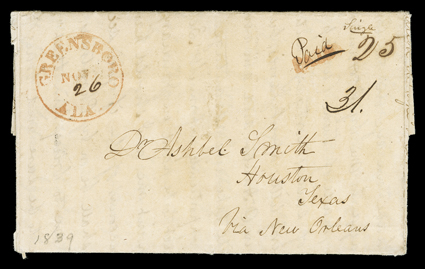 GREENSBORO
NOV
26
ALA.
Paid
25
31.
Dr Ashbel Smith
Houston
Texas
Via New Orleans
1839